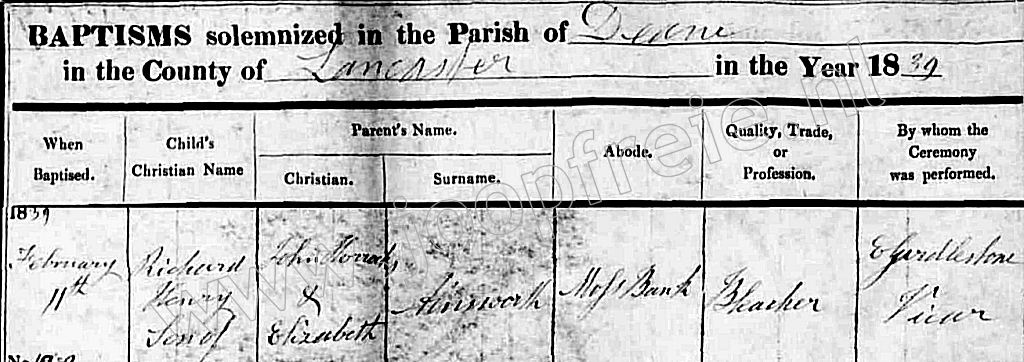 BAPTISMS solemnized in the Parish of Deane
in the County of Lancaster in the Year 1839
When Baptised.
Child's Christian Name
Parent's Name.
Christian.
Surname.
Abode.
Quality, Trade, or Profession.
By whom the Ceremony was performed.
1839
February 11th
Richard Henry Son of
John Horrocks & Elizabeth
Ainsworth
Moss Bank
Bleacher
E Girdlestone Vicar
www.joopfreie.nl